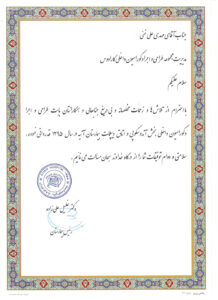 جناب آقای مهدی علی فنی
مدیریت مجموعه طراحی و اجرا دکوراسیون داخلی کارادوس
سلام علیکم
با احترام از تلاش‌ها و زحمات مخلصانه و بی دریغ جنابعالی و همکارانتان بابت طراحی و اجرا
دکوراسیون داخلی بخش آندوسکوپی و اتاق عملیات بیمارستان آتیه در سال ۱۳۹۵ قدردانی نموده،
سلامتی و دوام توفیقات شما را از درگاه خداوند سبحان مسالت می نمایم.
دکتر خلیل علی زاده
رئیس بیمارستان